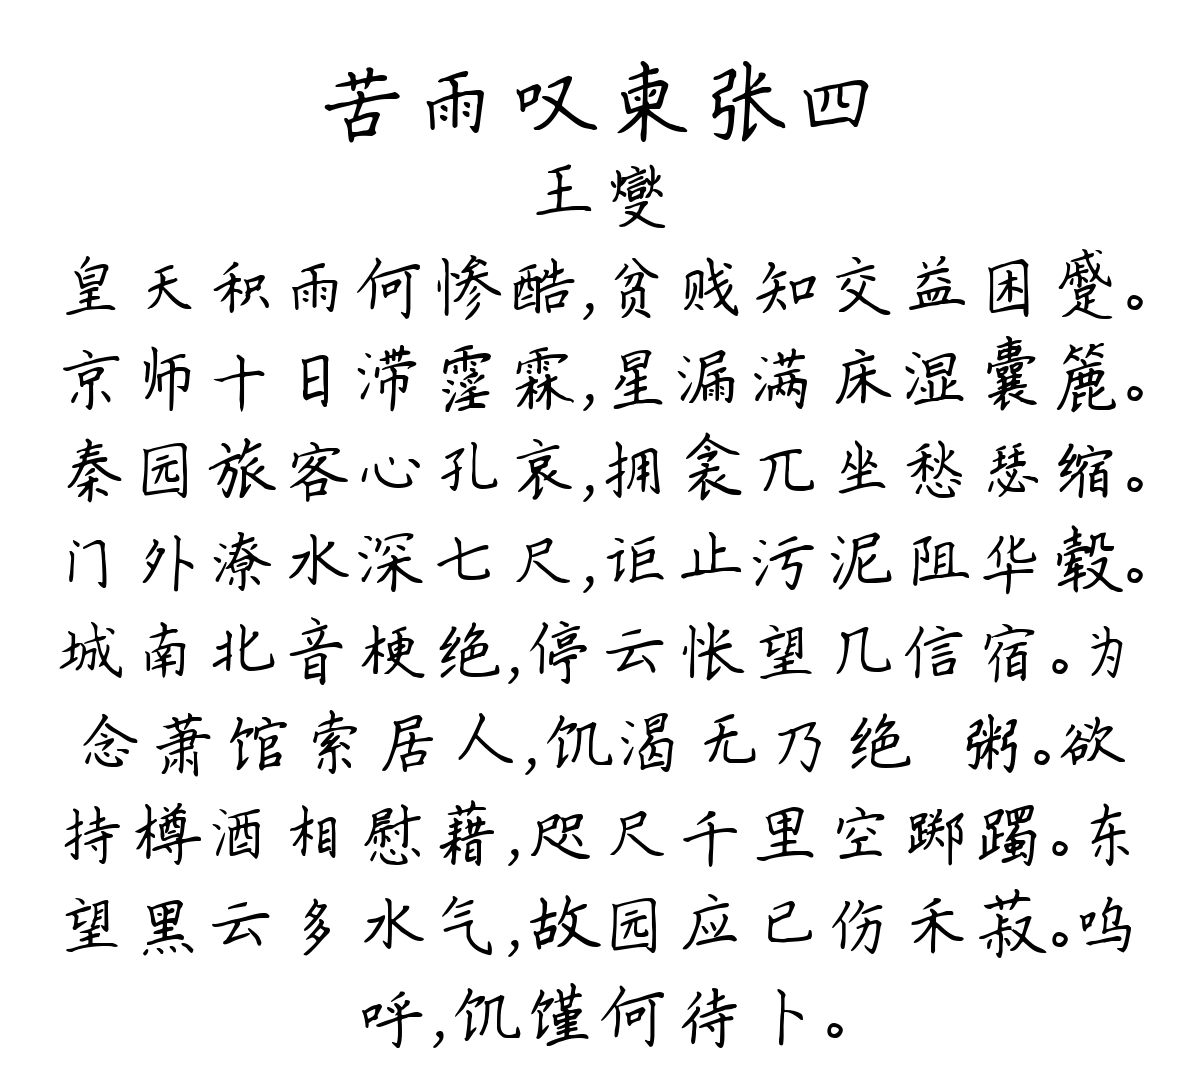 苦雨叹柬张四
王燮
皇天积雨何惨酷,贫贱知交益困蹙。
京师十日滞霪霖,星漏满床湿囊簏。
秦园旅客心孔哀,拥衾兀坐愁瑟缩。
门外潦水深七尺,讵止污泥阻华毂。
城南北音梗绝,停云怅望几信宿。为
念萧馆索居人,饥渴无乃绝 粥。欲
持樽酒相慰藉,咫尺千里空踯躅。东
望黑云多水气,故园应已伤禾菽。呜
呼,饥馑何待卜。